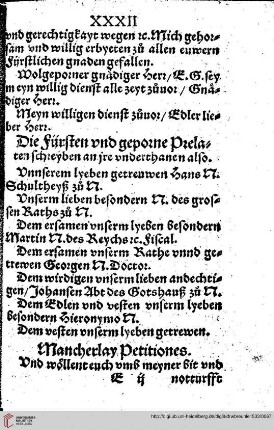 XXXII
vnd gerechtigkayt wegen ꝛc. Mich gehor-
sam vnd willig erbyeten zů allen euwern
Fürstlichen gnaden gefallen.
Wolgeporner gnådiger Herr/ E. G. sey
m eyn willig dienst alle zeyt zůuor/ Gnå-
diger Herr.
Meyn willigen dienst zůuor/ Edler lie-
ber Herr.
Die Fürsten vnd geporne Prela-
ten schreyben an jre vnderthanen also.
Vnnserem lyeben getreuwen Hans N.
Schultheyß zů N.
Vnserm lieben besondern N. des gros-
sen Raths zů N.
Dem ersamen vnserm lyeben besondern
Martin N. des Reychs ꝛc. Fiscal.
Dem ersamen vnserm Rathe vnnd ge-
trewen Georgen N. Doctor.
Dem wirdigen vnserm lieben andechti-
gen/ Johansen Abt des Gotshauß zů N.
Dem Edlen vnd vesten vnserm lyeben
besondern Hieronymo N.
Dem vesten vnserm lyeben getrewen.
Mancherlay Petitiones.
Vnd wöllent euch vmb meyner bit vnd
E ij notturfft